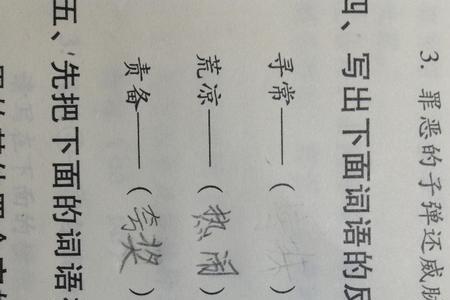 3. 罪恶的子弹还威胁
四、写出下面词语的反
寻常——( )
荒凉——(热闹)
责备——(夸奖)
五、先把下面的词语